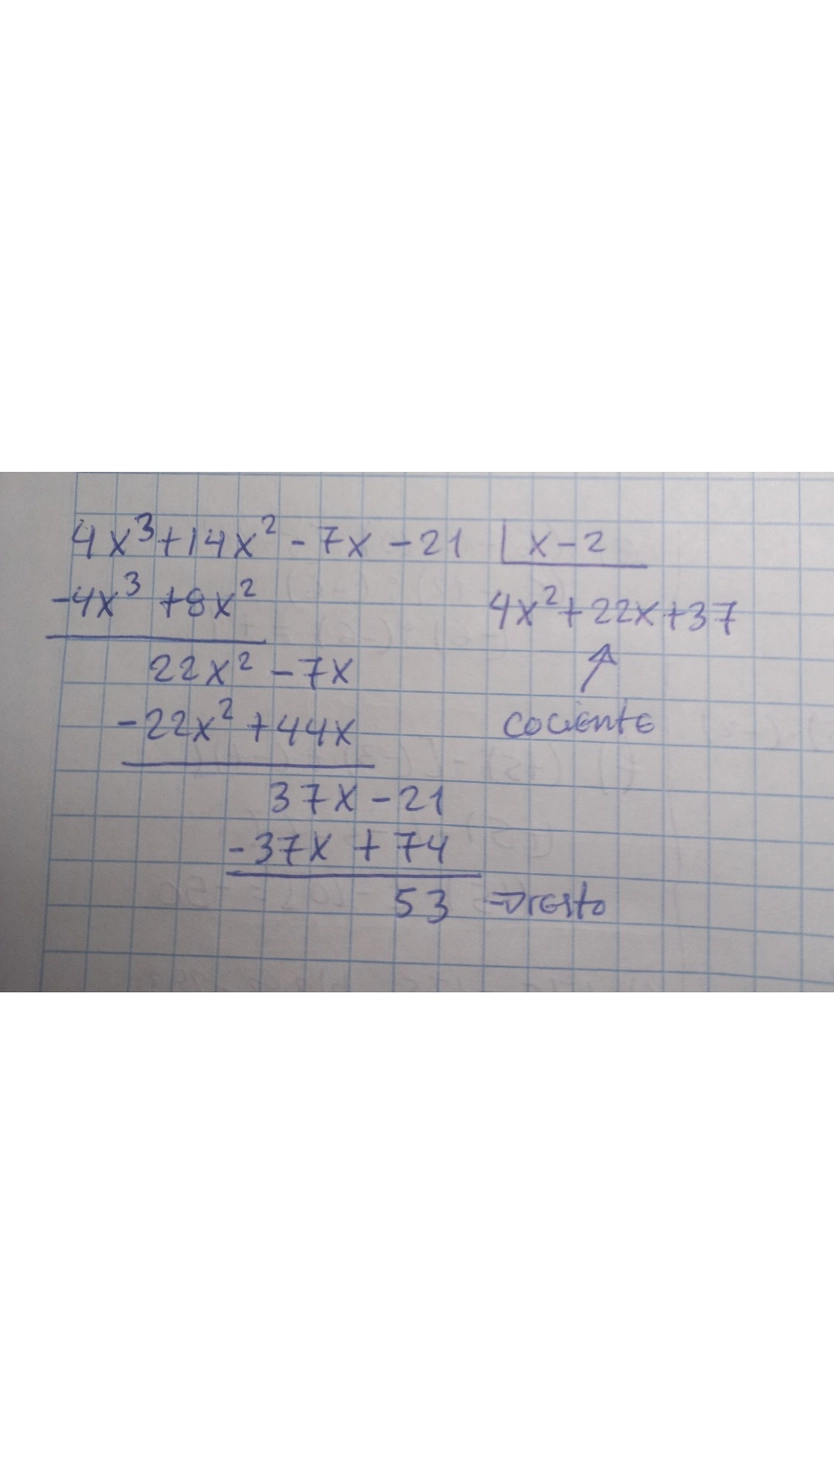 4x³+14x²-7x-21 |x-2
-4x³+8x² 4x²+22x+37
22x²-7x
-22x²+44x cociente
37x-21
-37x+74
53 ⇒resto